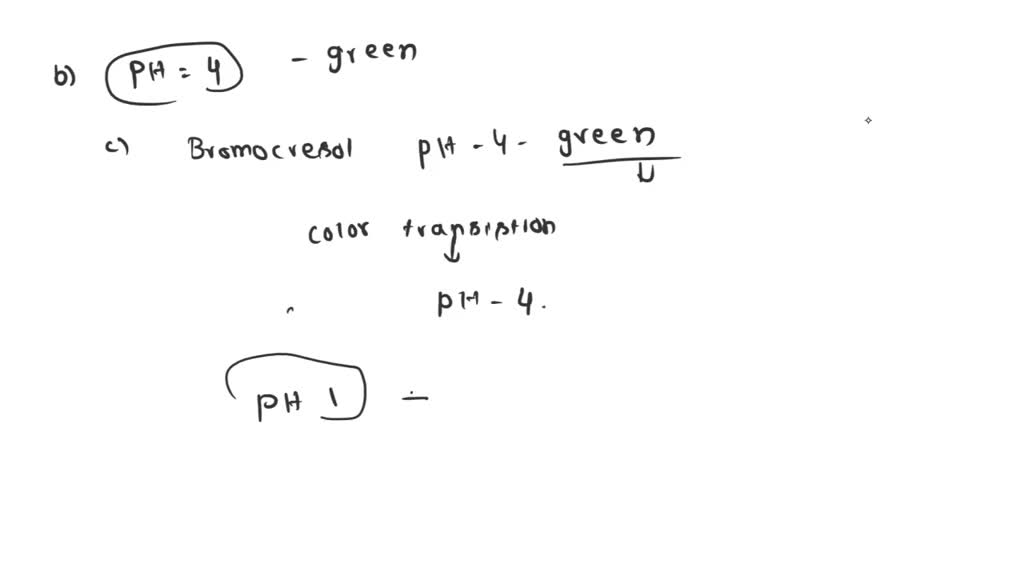 b) PH = 4 - green
c) Bromocresol pH - 4 - green
color transiption
pH - 4.
pH 1 -